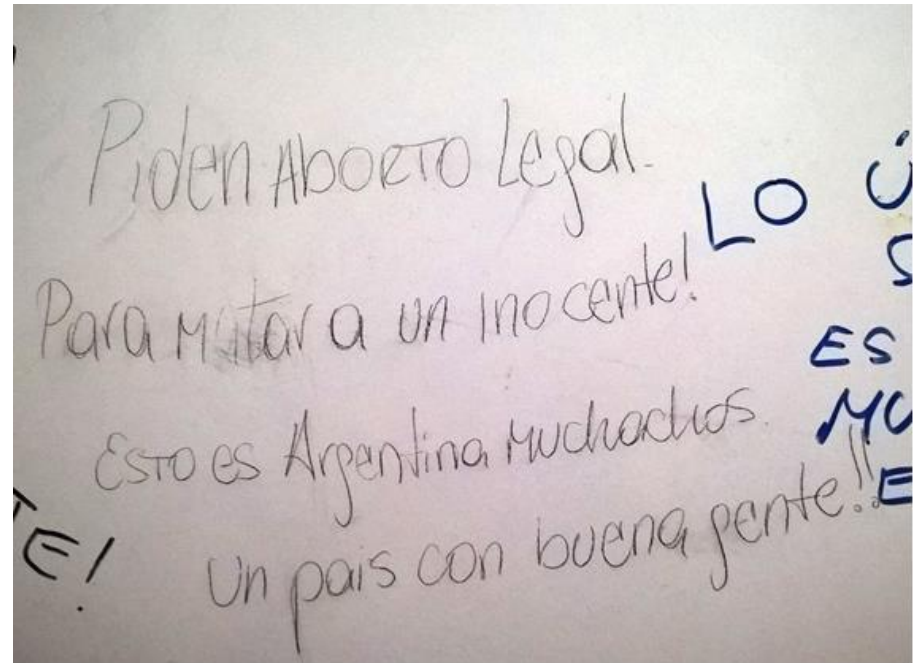 Piden Aborto Legal.
Para Matar a un inocente!
Esto es Argentina Muchachos.
Un pais con buena gente!!
LO Ú
S
ES
MU
E
TE!